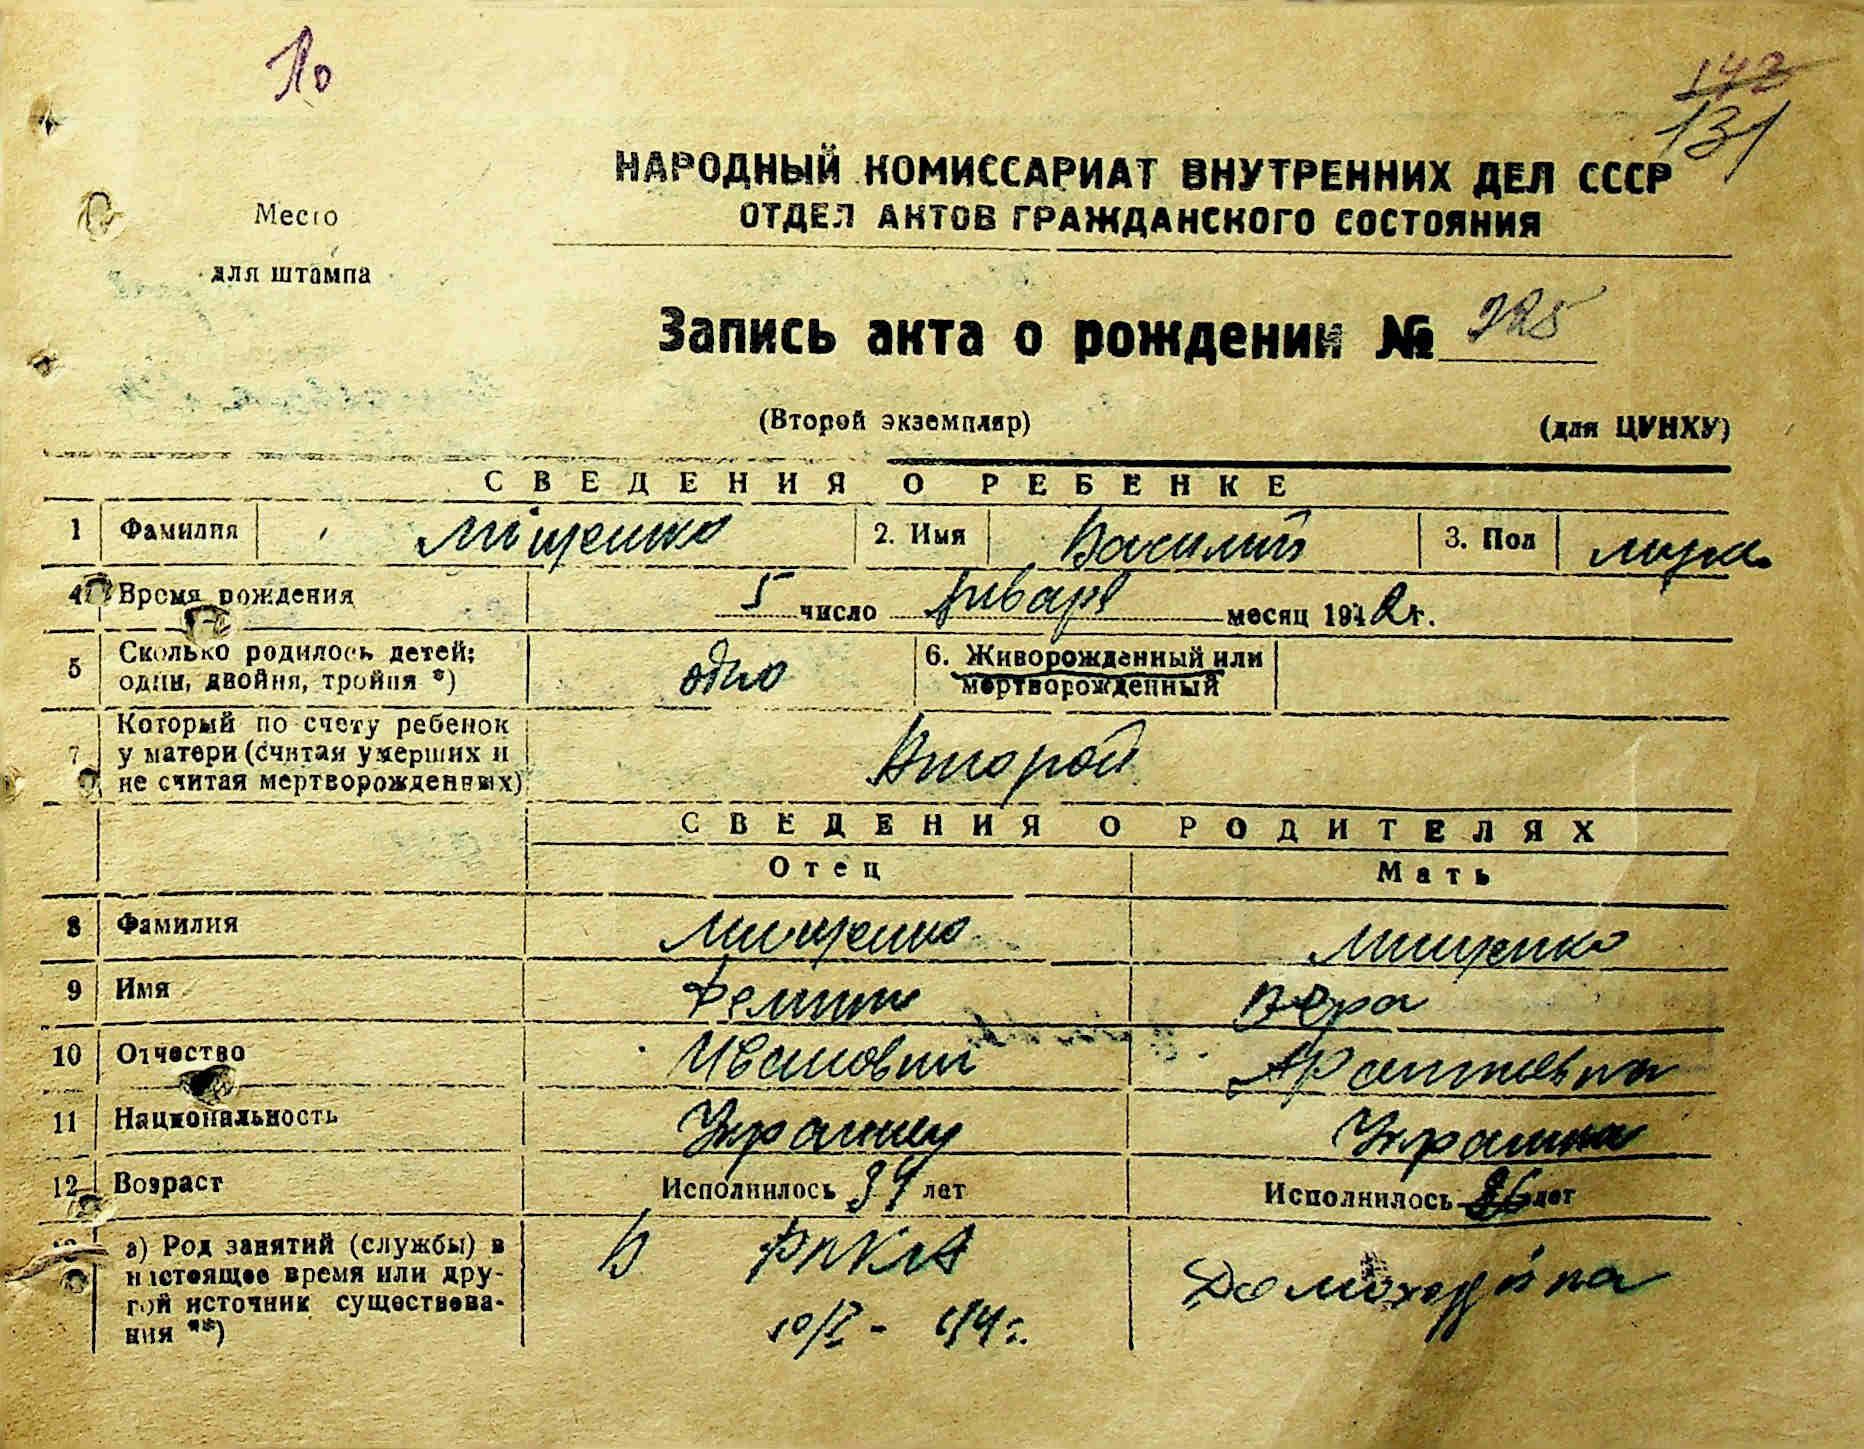 142
131
НАРОДНЫЙ КОМИССАРИАТ ВНУТРЕННИХ ДЕЛ СССР
ОТДЕЛ АКТОВ ГРАЖДАНСКОГО СОСТОЯНИЯ
Место
для штампа
Запись акта о рождении №
(Второй экземпляр) (для ЦУНХУ)
СВЕДЕНИЯ О РЕБЕНКЕ
1 Фамилия Міщенко 2. Имя Василий 3. Пол
4 Время рождения 5 число Январь месяц 1942 г.
5 Сколько родилось детей; один, двойня, тройня *) одно 6. Живорожденный или мертворожденный
7 Который по счету ребенок у матери (считая умерших и не считая мертворожденных) Второй
СВЕДЕНИЯ О РОДИТЕЛЯХ
Отец Мать
8 Фамилия Мищенко Мищенко
9 Имя Вера
10 Отчество Иванович
11 Национальность Украинец Украинка
12 Возраст Исполнилось 34 лет Исполнилось 26 лет
а) Род занятий (службы) в настоящее время или другой источник существования **) В РККА Домохозяйка